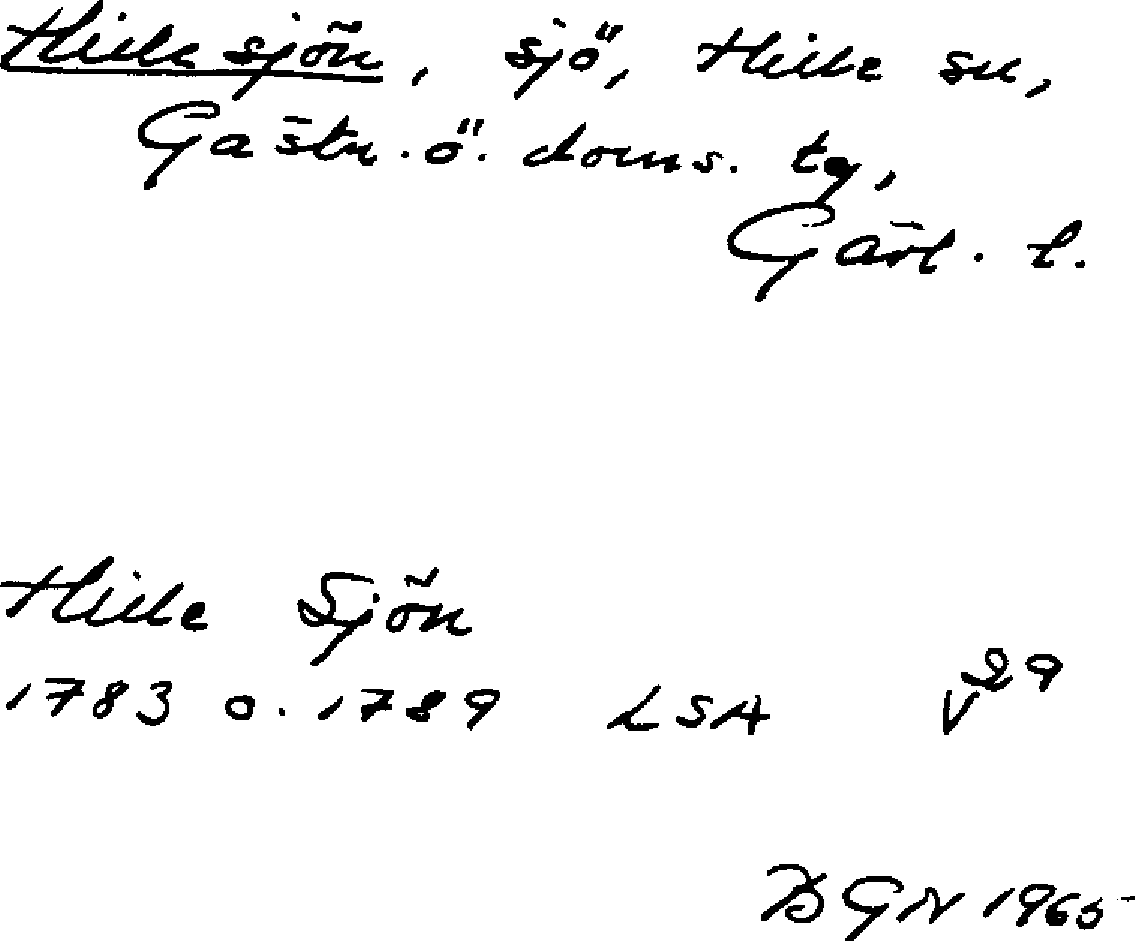 Hillesjön, sjö, Hille sn,
Gästr. ö. doms. tg,
Gävl. l.
Hille Sjön
1783 o. 1789 LSA V29
BGN 1965